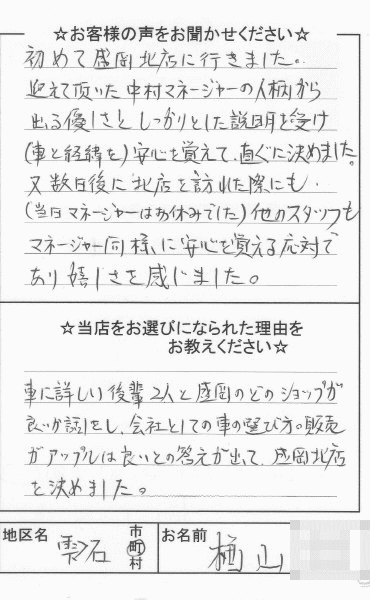 ☆お客様の声をお聞かせください☆
初めて盛岡北店に行きました。
迎えて頂いた中村マネージャーの人柄から
出る優しさと しっかりとした説明を受け
(車と経緯を)安心を覚えて、直ぐに決めました。
又数日後に北店を訪れた際にも、
(当日マネージャーはお休みでした)他のスタッフも
マネージャー同様に安心を覚える応対で
あり嬉しさを感じました。
☆当店をお選びになられた理由を
お教えください☆
車に詳しい後輩2人と盛岡のどのショップが
良いか話をし、会社としての車の選び方。販売
がアップルは良いとの答えが出て、盛岡北店
を決めました。
地区名 雫石 市町村 お名前 植山